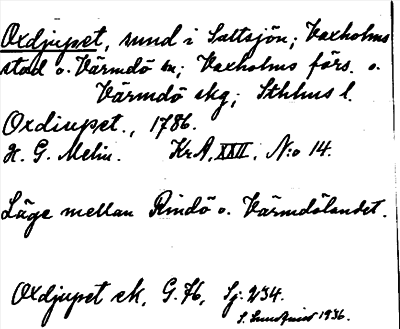 Oxdjupet, sund i Saltsjön; Vaxholms
stad o. Värmdö sn; Vaxholms förs. o.
Värmdö skg; Sthlms l.
Oxdiupet., 1786.
H. G. Melin. KrA, XXII, N:o 14.
Läge mellan Rindö o. Värmdölandet.
Oxdjupet ek, G. 76, Sj. 234.
S. 1936.